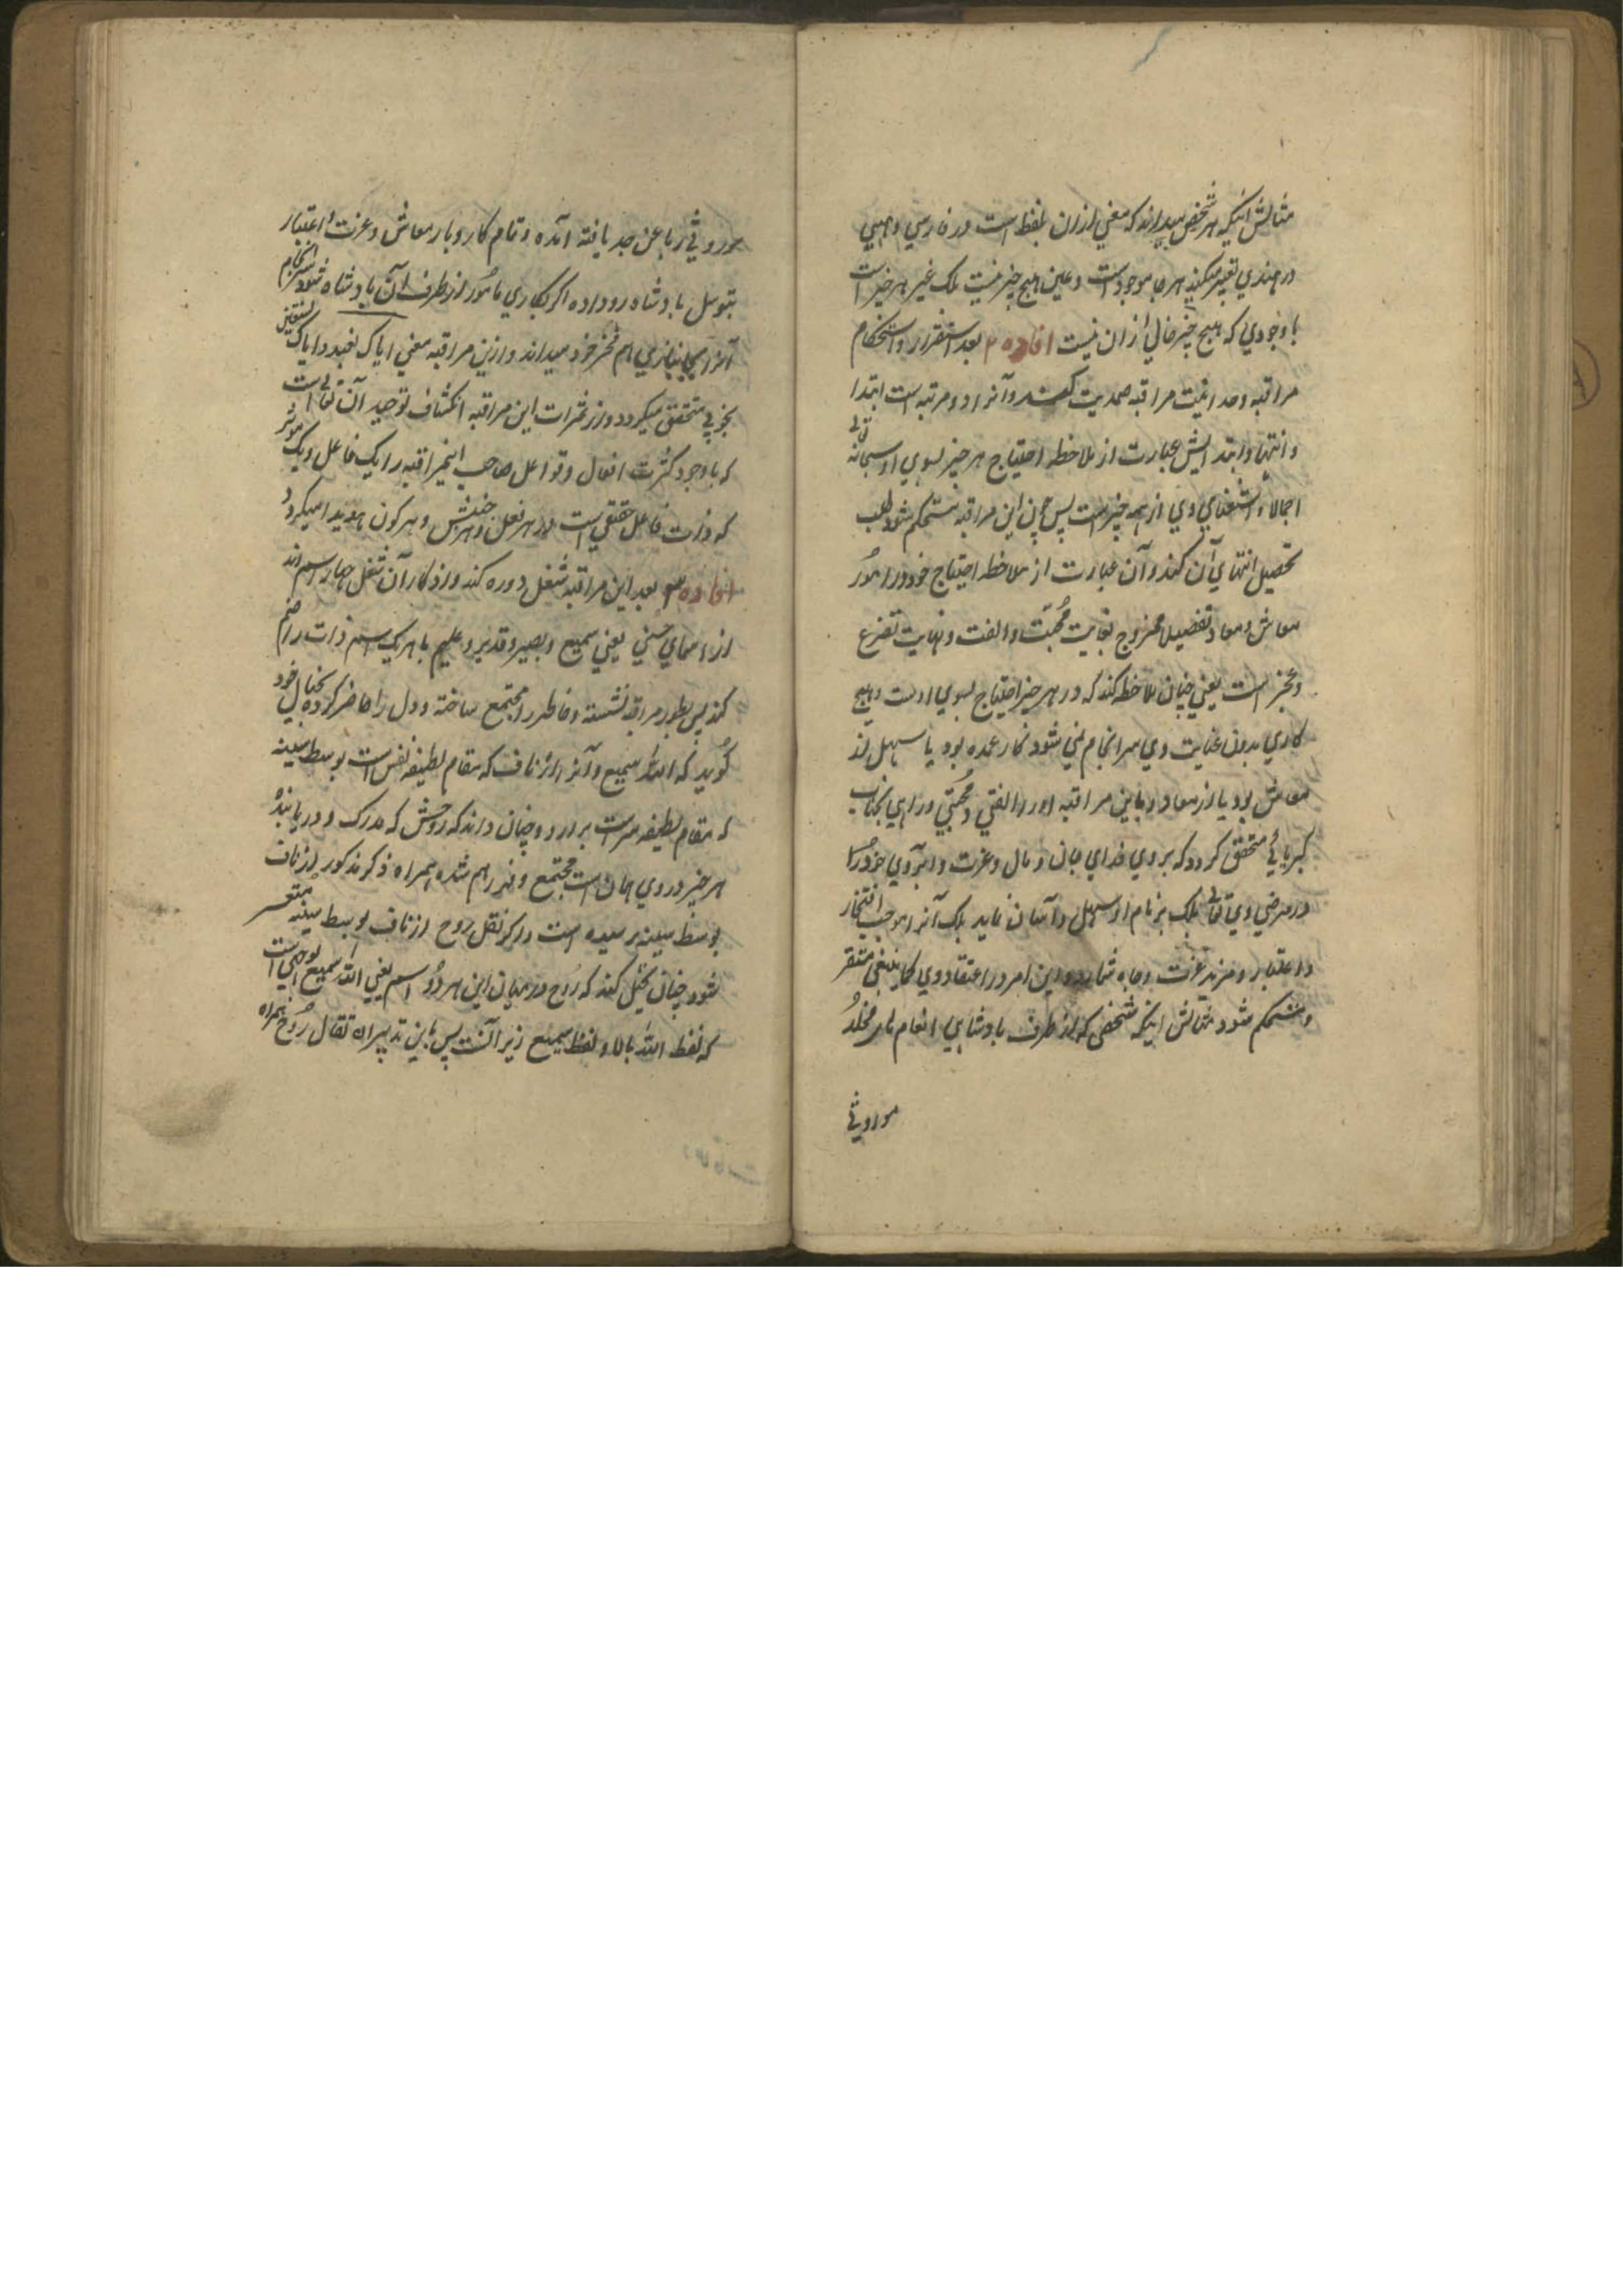 مثالش اینکه هر شخص میداند که معنی ازان بلفظ است در فارسی و هیی
در هندی تعبیر میکنند هر جا موجود است و عین هیچ چیز نیست بلک غیر هر چیز است
با وجودیکه هیچ چیز خالی ازان نیست افاده ۲ بعد استقرار و استحکام
مراقبه وحدانیت مراقبه صمدیت کند و آنرا دو مرتبه است ابتدا
و انتها و ابتدایش عبارت از ملاحظه احتیاج هر چیز بسوی او سبحانه تعالی
اجمالا و استغنای وی از همه چیز است پس چون این مراقبه مستحکم شود طلب
تحصیل انتهای آن کند و آن عبارت از ملاحظه احتیاج خود در امور
معاش و معاد تفصیلا ممزوج بغایت محبت و الفت و نهایت تضرع
و عجز است یعنی چنان ملاحظه کند که در هر چیز احتیاج بسوی اوست و هیچ
کاری بدون عنایت وی سرانجام نمی شود کار عمده بود یا سهل از
معاش بود یا از معاد و باین مراقبه او را الفتی و محبتی و راهی بجناب
کبریائی متحقق گردد که بروی فدای جان و مال و عزت و ابروی خود را
در مرضی وی تعالی بلک بر نام او سهل و آسان نماید بلک آنرا موجب افتخار
و اعتبار و مزید عزت و جاه شمارد و این امر در اعتقاد وی کما ینبغی مستقر
و مستحکم شود مثالش اینکه شخصی که از طرف بادشاهی انعام مخلد
موروثی
موروثی ابا عن جد یافته آمده و تمام کار و بار معاش و عزت و اعتبار
بتوسل بادشاه رو داده اگر بکاری مامور از طرف آن بادشاه شود سرانجام
آنرا بجانبازی هم فخر خود میداند و ازین مراقبه معنی ایاک نعبد و ایاک نستعین
بخوبی متحقق میگردد و از ثمرات این مراقبه انکشاف توحید آن تعالی است
که با وجود کثرت افعال و فواعل صاحب اینمراقبه را یک فاعل و یک موثر
که ذات فاعل حقیقی است در هر فعل و هر جنبش و هر کون هویدا میگردد
افاده ۳ بعد این مراقبه شغل دوره کند و اذکار آن شغل چهار اسم اند
از اسمای حسنی یعنی سمیع و بصیر و قدیر و علیم با هر یک اسم ذات را ضم
کند پس بطور مراقبه نشسته و خاطر را مجتمع ساخته و دل را حاضر کرده بخیال خود
گوید که الله سمیع و آنرا از ناف که مقام لطیفه نفس است بوسط سینه
که مقام لطیفه سر است برارد و چنان داند که روحش که مدرک و دریابنده
هر چیز در وی همان است مجتمع و فراهم شده همراه ذکر مذکور از ناف
بوسط سینه رسیده است و اگر نقل روح از ناف بوسط سینه متعسر
شود چنان تخیل کند که روح در میان این هر دو اسم یعنی الله سمیع بوجهی است
که لفظ الله بالا و لفظ سمیع زیر آنست پس باین تدبیر انتقال روح همراه